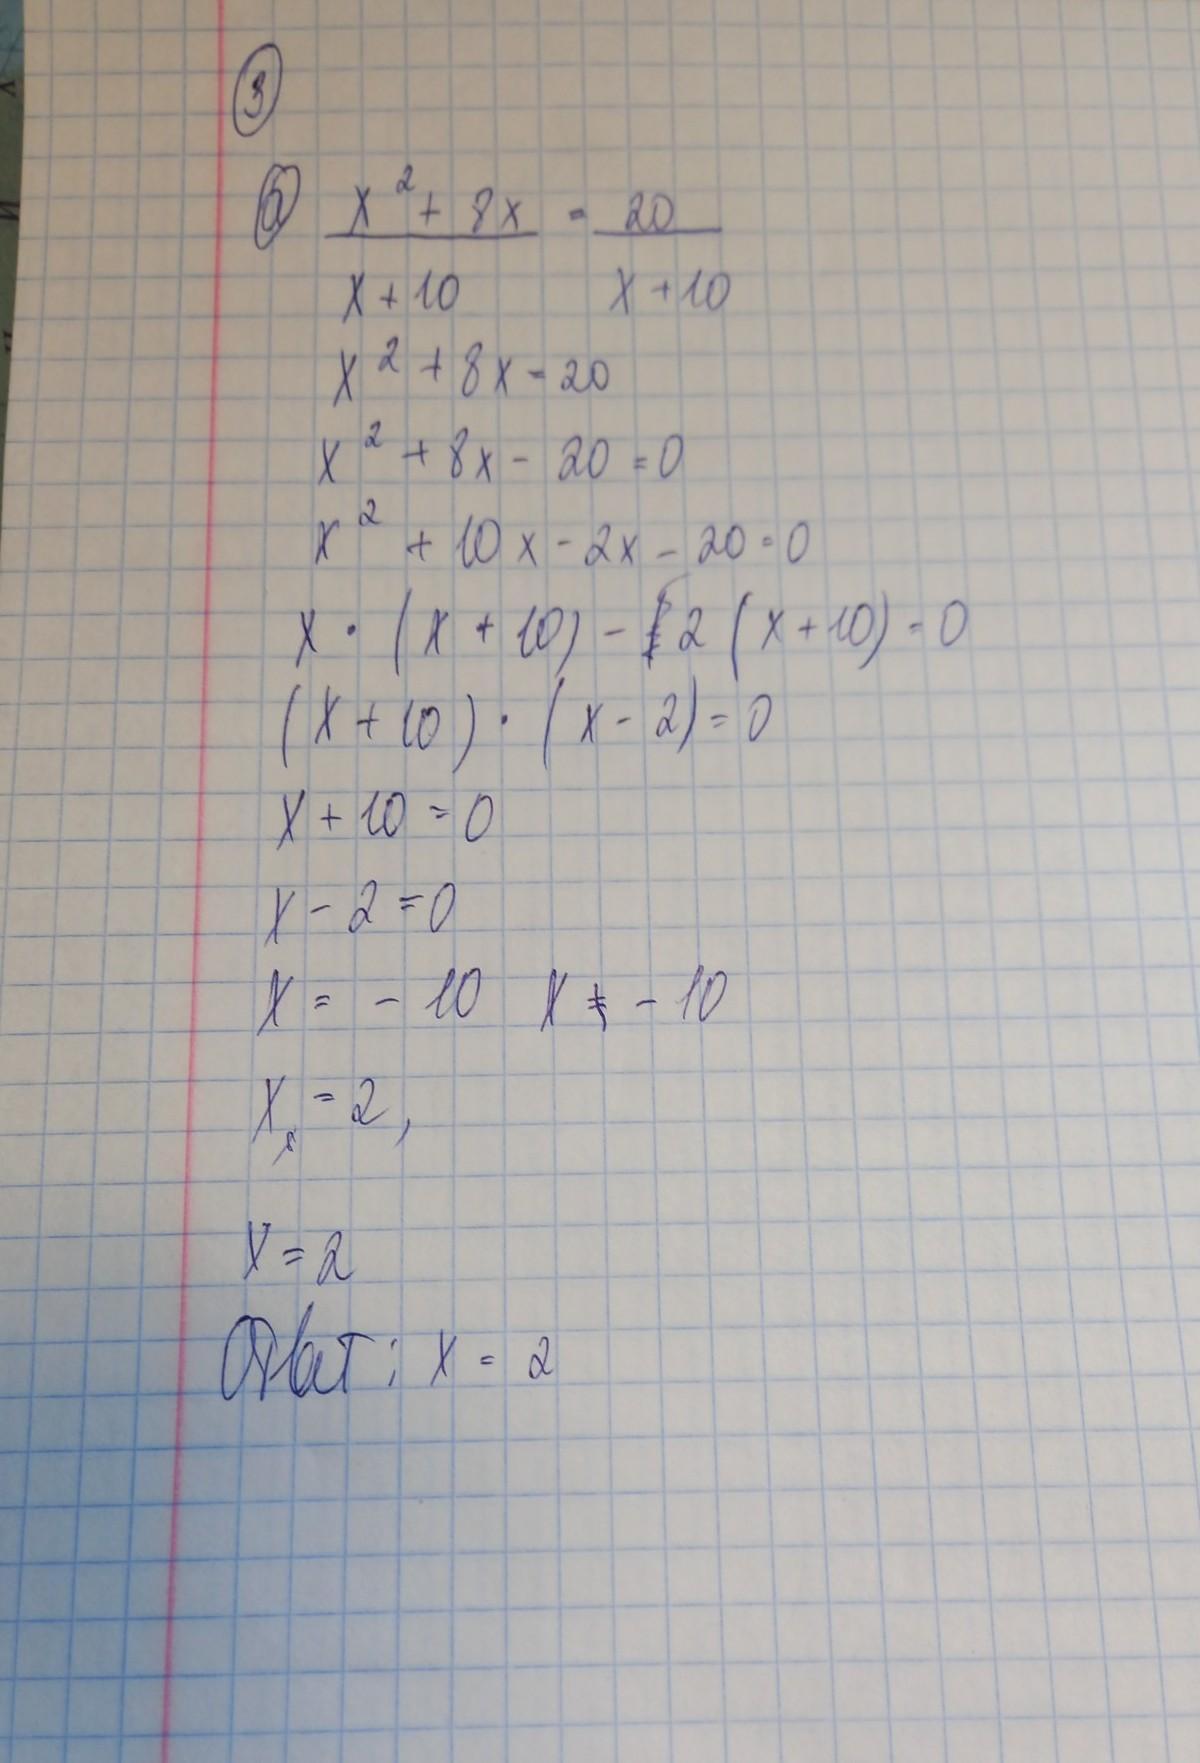 3
x² + 8x = 20
x + 10 x + 10
x² + 8x = 20
x² + 8x - 20 = 0
x² + 10x - 2x - 20 = 0
x · (x + 10) - 2 (x + 10) = 0
(x + 10) · (x - 2) = 0
x + 10 = 0
x - 2 = 0
x = - 10 x ≠ - 10
x = 2,
x = 2
Ответ: x = 2